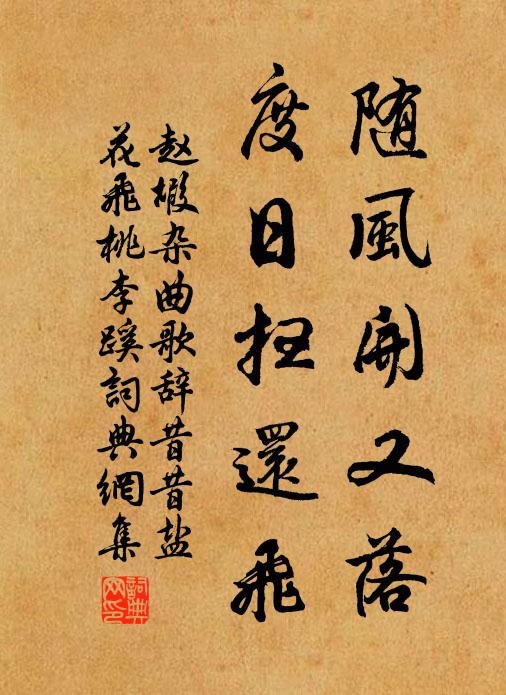 随風開又落
度日扫還飛
赵嘏杂曲歌辞昔昔盐
花飛桃李蹊詞典網集
詞典網印